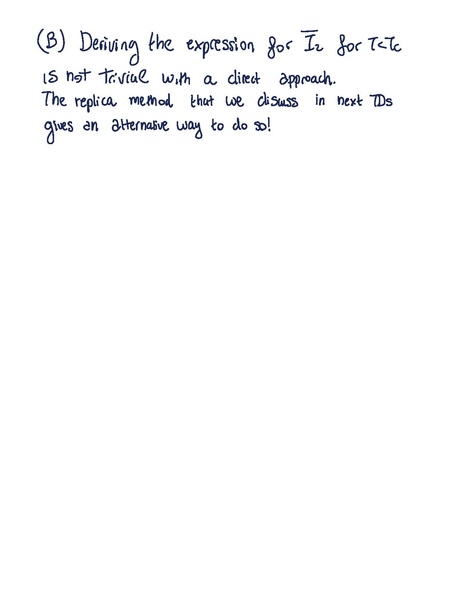 (B) Deriving the expression for I̅₂ for T<Tc
is not trivial with a direct approach.
The replica method that we discuss in next TDs
gives an alternative way to do so!